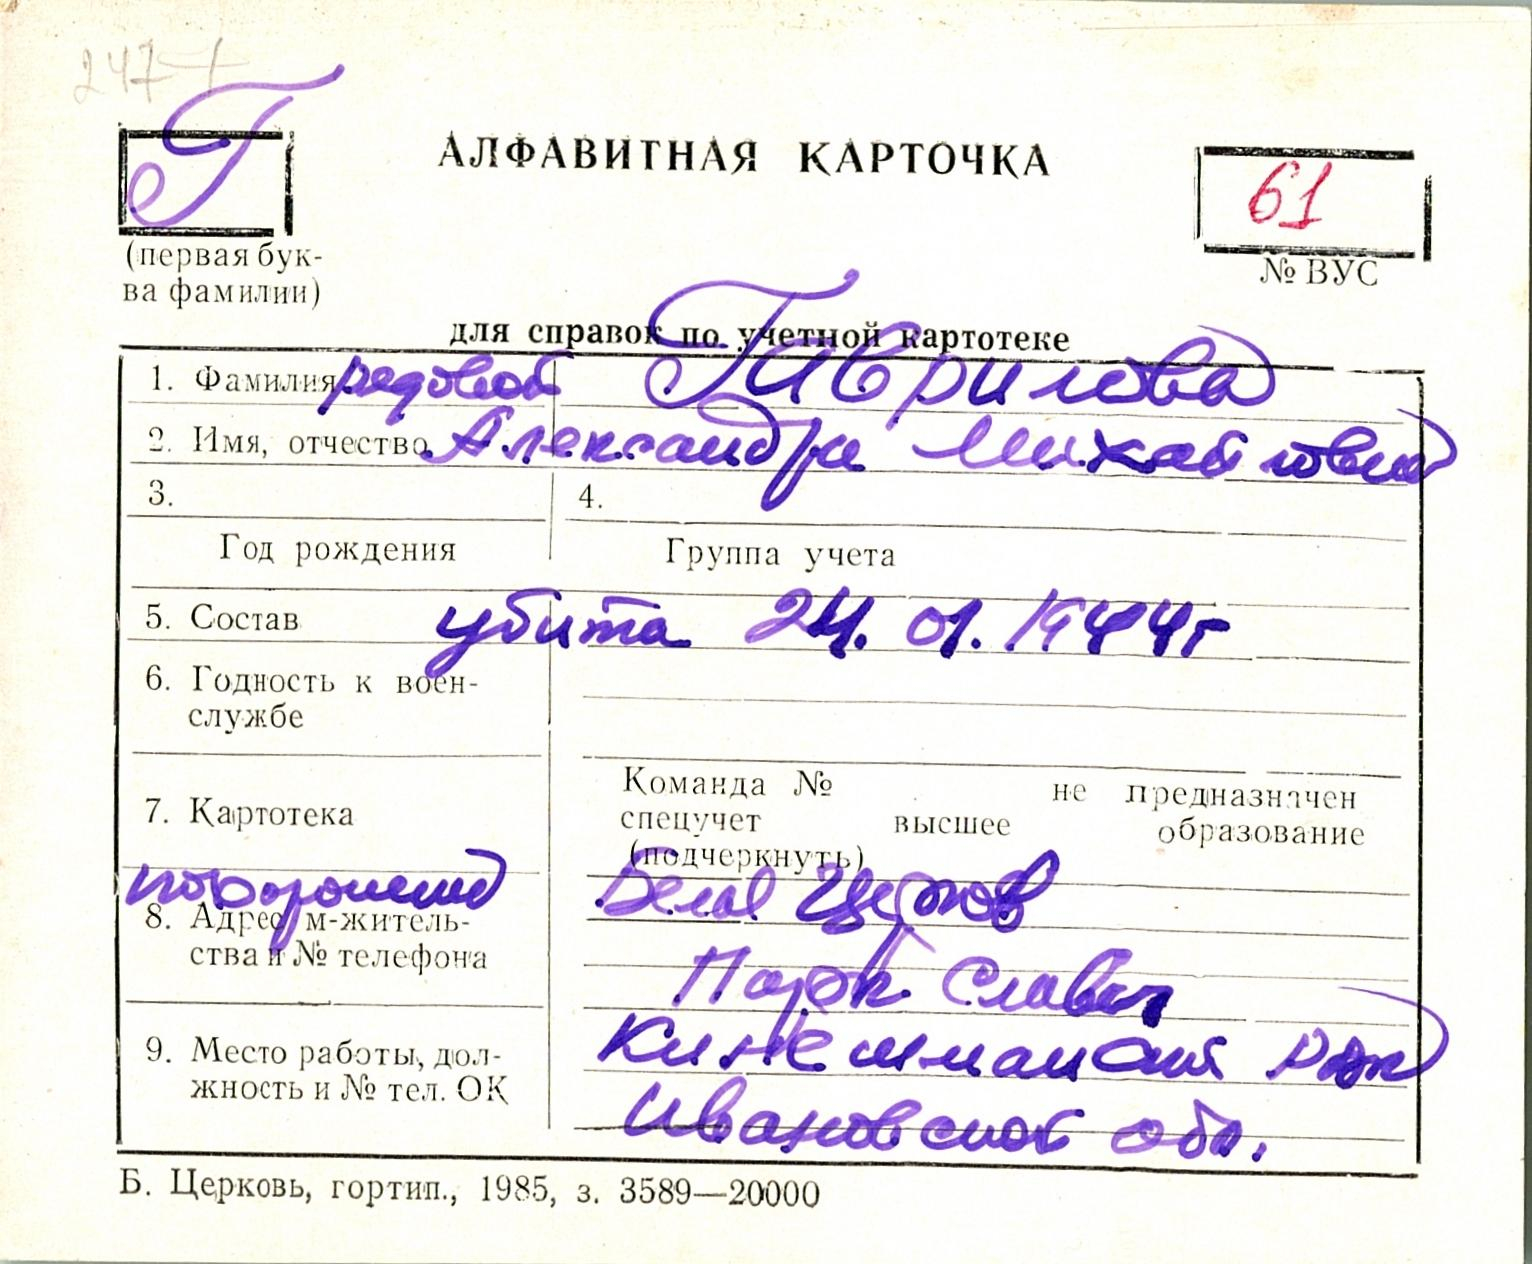 247
Г
АЛФАВИТНАЯ КАРТОЧКА
61
(первая бук-
ва фамилии)
№ ВУС
для справок по учетной картотеке
1. Фамилия рядовой Гаврилова
2. Имя, отчество Александра Михайловна
3.
4.
Год рождения
Группа учета
5. Состав убита 24.01.1944г
6. Годность к воен-
службе
7. Картотека
Команда № не предназначен
спецучет высшее образование
(подчеркнуть)
похоронена Белая Церковь
8. Адрес м-житель-
ства и № телефона
Парк Славы
9. Место работы, дол-
жность и № тел. ОК
Кинешманский р-н
Ивановской обл.
Б. Церковь, гортип., 1985, з. 3589—20000